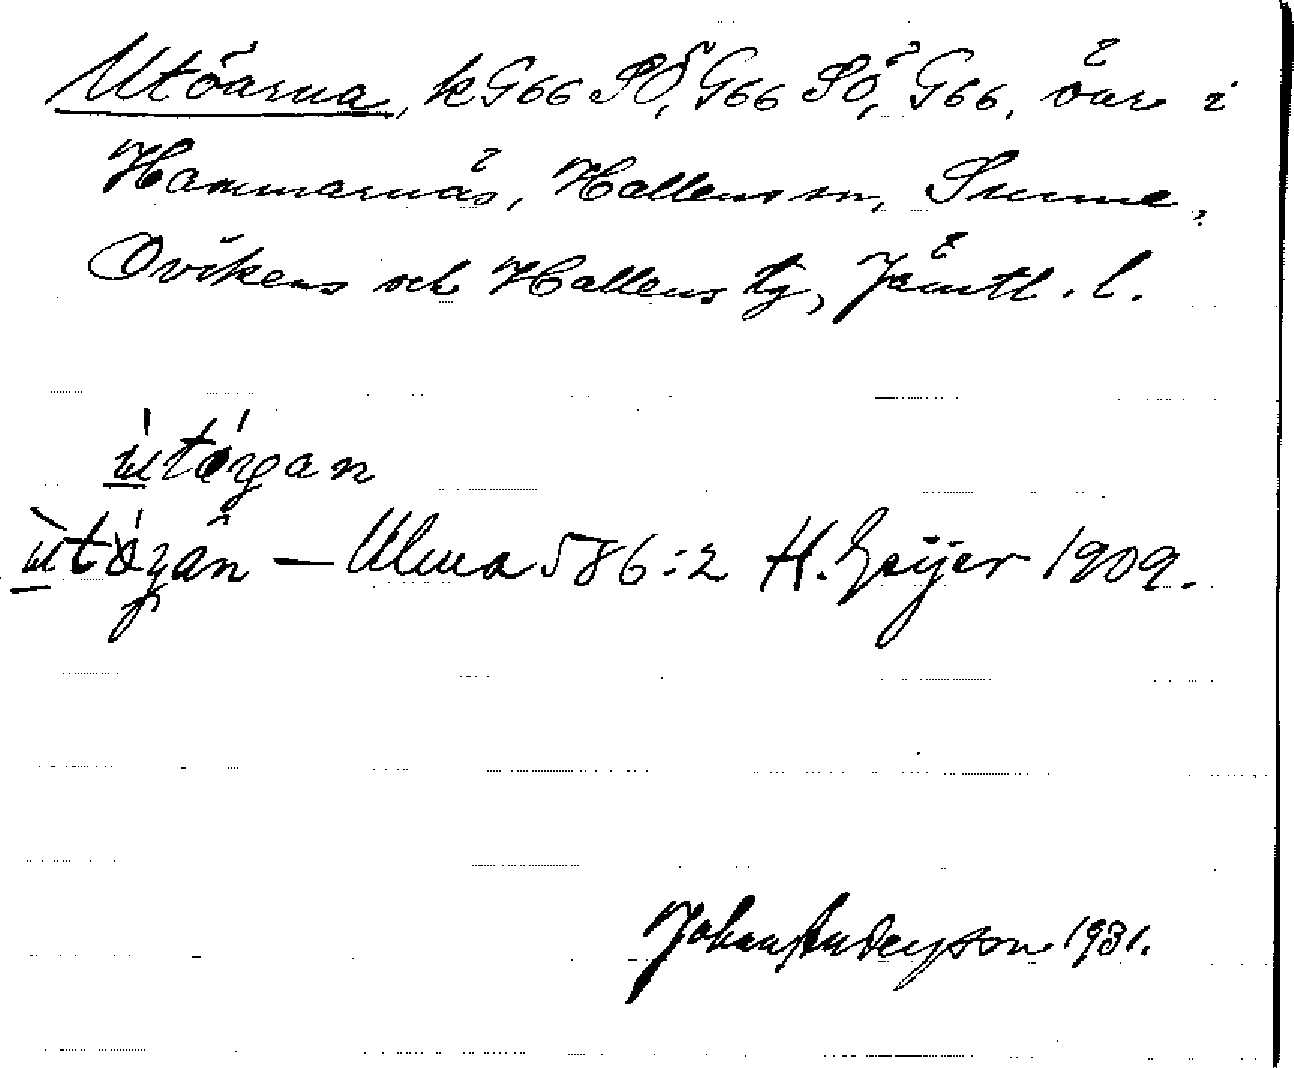 Utöarna, k G66 SÖ, G66 SÖ, G66, öar i
Hammarnäs, Hallens sn, Sunne,
Ovikens och Hallens tg, Jämtl. l.
ùtóyan
ùtóyan — Ulma 586:2 H. Geijer 1909.
Johan Anderson 1931.